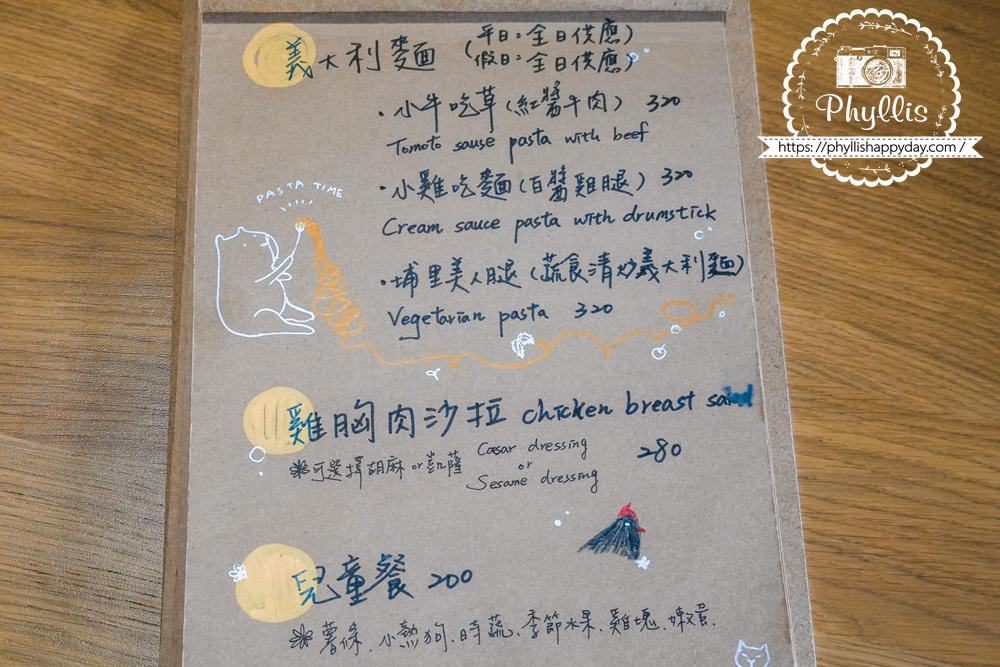 義大利麵 (平日:全日供應)
(假日:全日供應)
・小牛吃草(紅醬牛肉) 320
Tomoto sause pasta with beef
・小雞吃麵(白醬雞腿) 320
Cream sauce pasta with drumstick
・埔里美人腿(蔬食清炒義大利麵)
Vegetarian pasta 320
PASTA TIME
雞胸肉沙拉 chicken breast salad
280
※可選擇胡麻or凱薩 Caesar dressing
or
Sesame dressing
兒童餐 200
※薯條、小熱狗、時蔬、季節水果、雞塊、嫩蛋.
Phyllis
https://phyllishappyday.com /